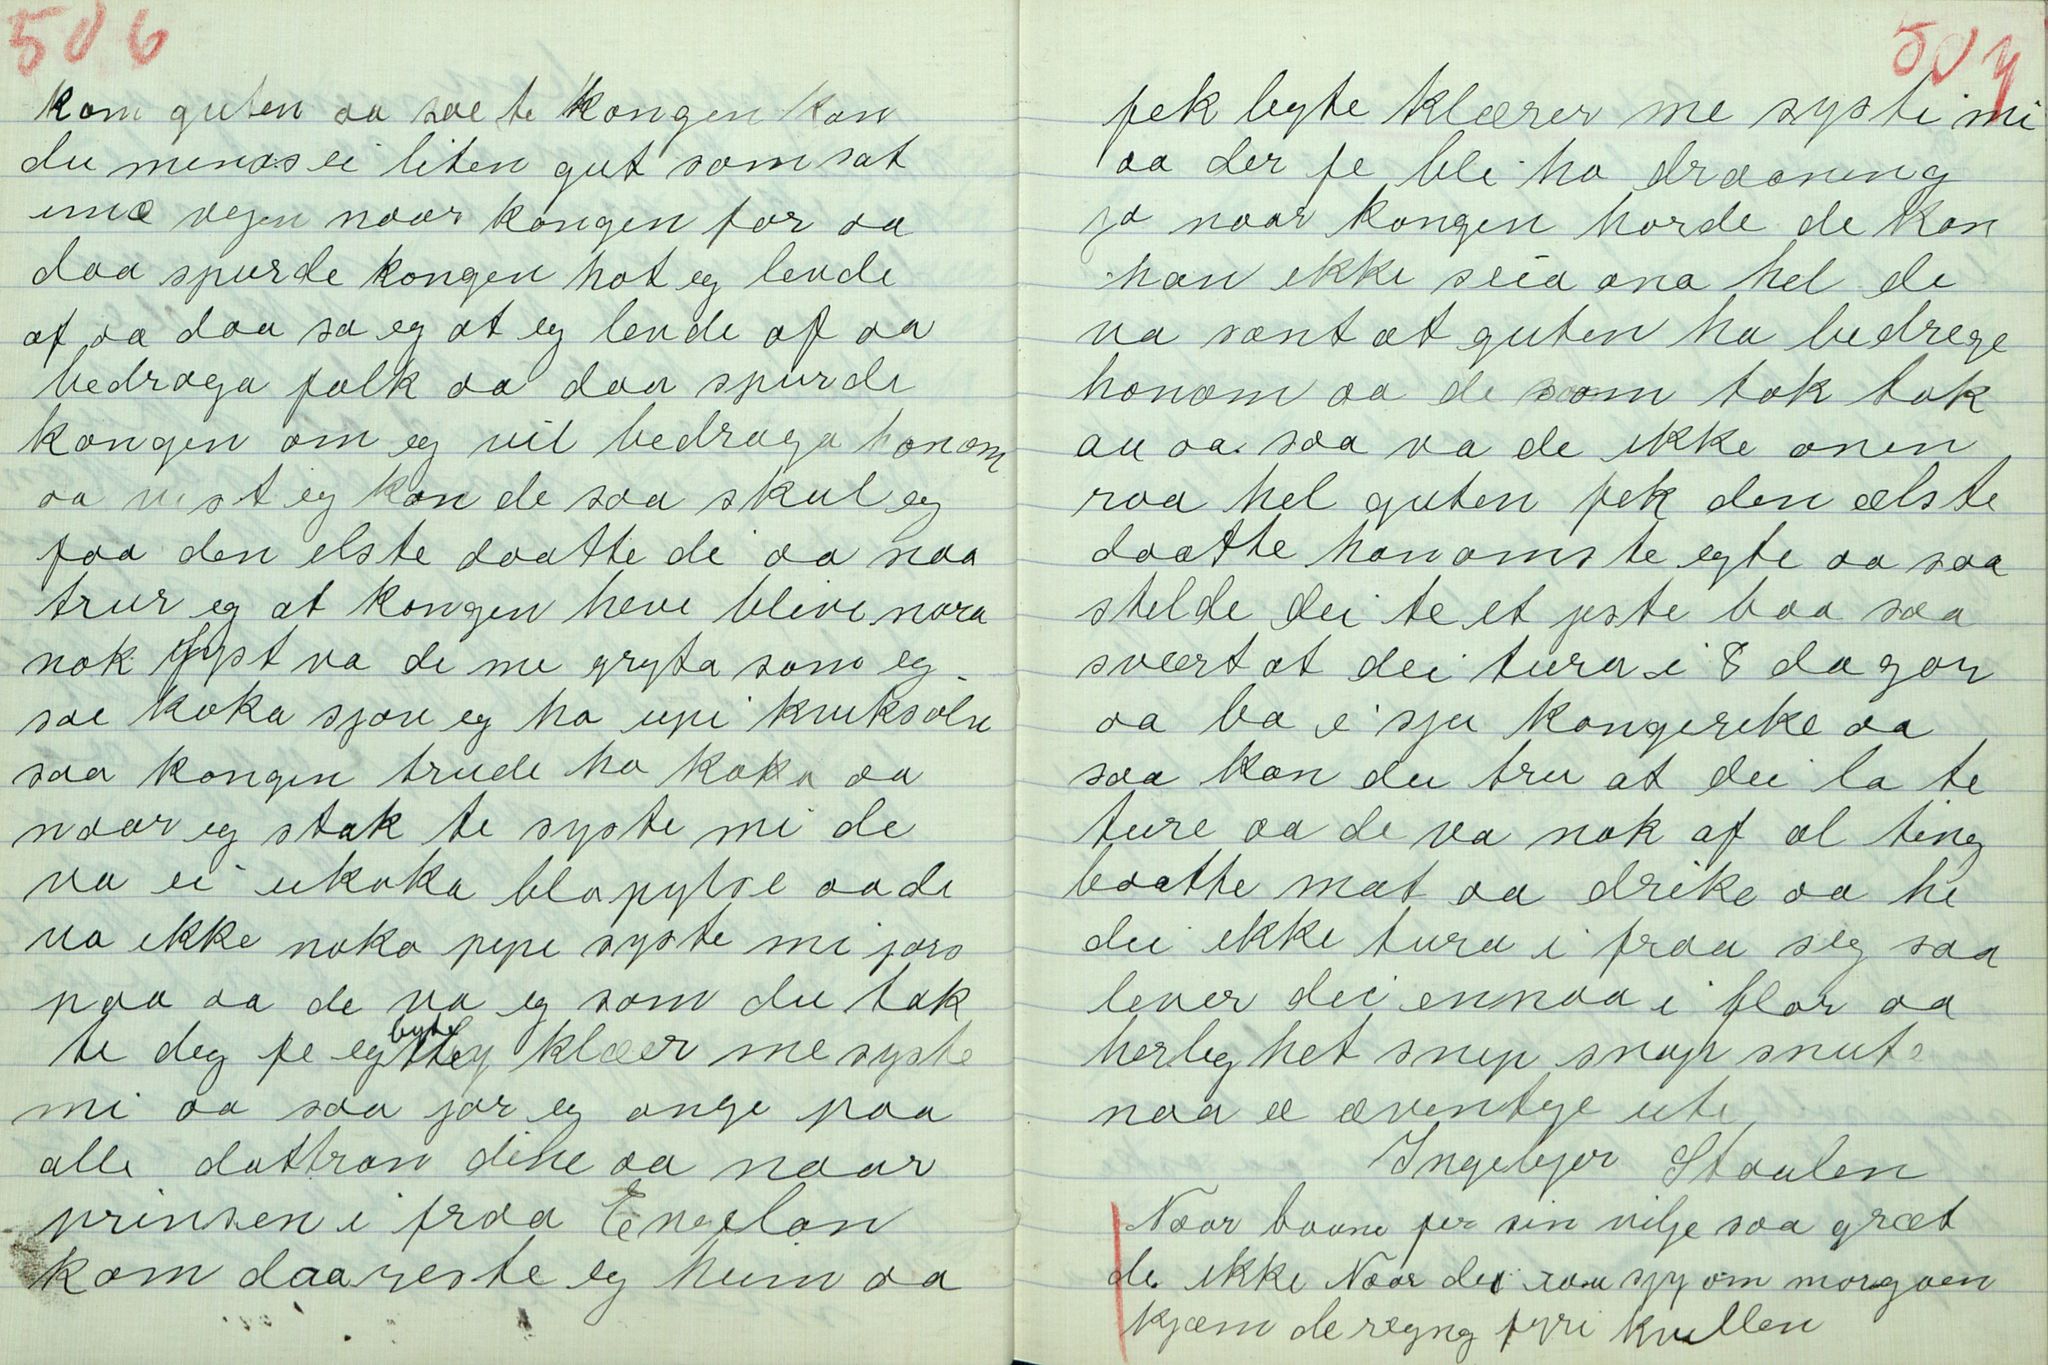 506
kom guten aa sae te kongen kan
du menas ei liten gut som sat
imæ vegen naar kongen for aa
daa spurde kongen hot eg levde
af aa daa sa eg at eg levde af aa
bedraga folk aa daa spurde
kongen om eg vil bedraga honom
aa vist eg kan de saa skul eg
faa den elste daatte di aa naa
trur eg at kongen heve blive nara
nok fyst va de me gryta som eg
sae koka sjøu eg ha upi kruksølu
saa kongen trude ho koka aa
naar eg stak te syste mi de
va ei ukoka blapylse aa de
va ikke noko pipe syste mi jors
paa aa de va eg som du tok
te deg fe eg byte klæer me syste
mi aa saa jor eg ange paa
alle dottran dine aa naar
prinsen i fraa Engelan
kom daa reste eg heim aa
507
fek byte klærer me syste mi
aa der fe blei ho draaning
ja naar kongen horde de kan
han ikke seia ana hel de
va sant at guten ha bedrege
honom aa de som tok tok
au aa saa va de ikke anen
raa hel guten fek den ælste
daatte honoms te egte aa saa
stelde dei te et jste baa saa
svært at dei tura i 8 dagar
aa ba i sju kongerike aa
saa kan du tru at dei la te
ture aa de va nok af al ting
baatte mat aa drike aa he
dei ikke tura i fraa seg saa
lever dei ennaa i flor aa
herleghet snip snap snute
naa æ æventye ute
Ingebjør Staalen
Naar baane fer sin vilje saa græt
de ikke Naar dei roa sjy om morgaen
kjæm de rægng fyri kvellen